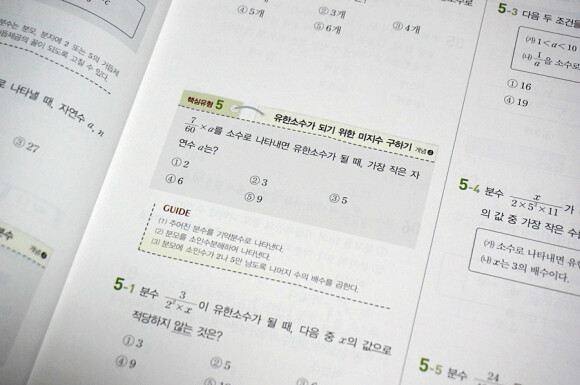 분수는 분모, 분자에 2 또는 5의 거듭제
듭제곱의 꼴이 되도록 고칠 수 있다.
로 나타낼 때, 자연수 a, n
③ 27
분수
개념
② 3개
④ 5개
③ 4개
⑤ 6개
핵심유형 5
유한소수가 되기 위한 미지수 구하기 개념 ❷
7/60 × a를 소수로 나타내면 유한소수가 될 때, 가장 작은 자
연수 a는?
① 2
② 3
③ 5
④ 6
⑤ 9
GUIDE
(1) 주어진 분수를 기약분수로 나타낸다.
(2) 분모를 소인수분해하여 나타낸다.
(3) 분모에 소인수가 2나 5만 남도록 나머지 수의 배수를 곱한다.
5-1 분수 3/(2²×x) 이 유한소수가 될 때, 다음 중 x의 값으로
적당하지 않는 것은?
① 3
② 5
④ 9
5-3 다음 두 조건을
㈎ 1<a<10
㈏ 1/a 을 소수로
① 16
④ 19
5-4 분수 x/(2×5²×11) 가
의 값 중 가장 작은 수를
㈎ 소수로 나타내면 유한
㈏ x는 3의 배수이다.
5-5 분수 24